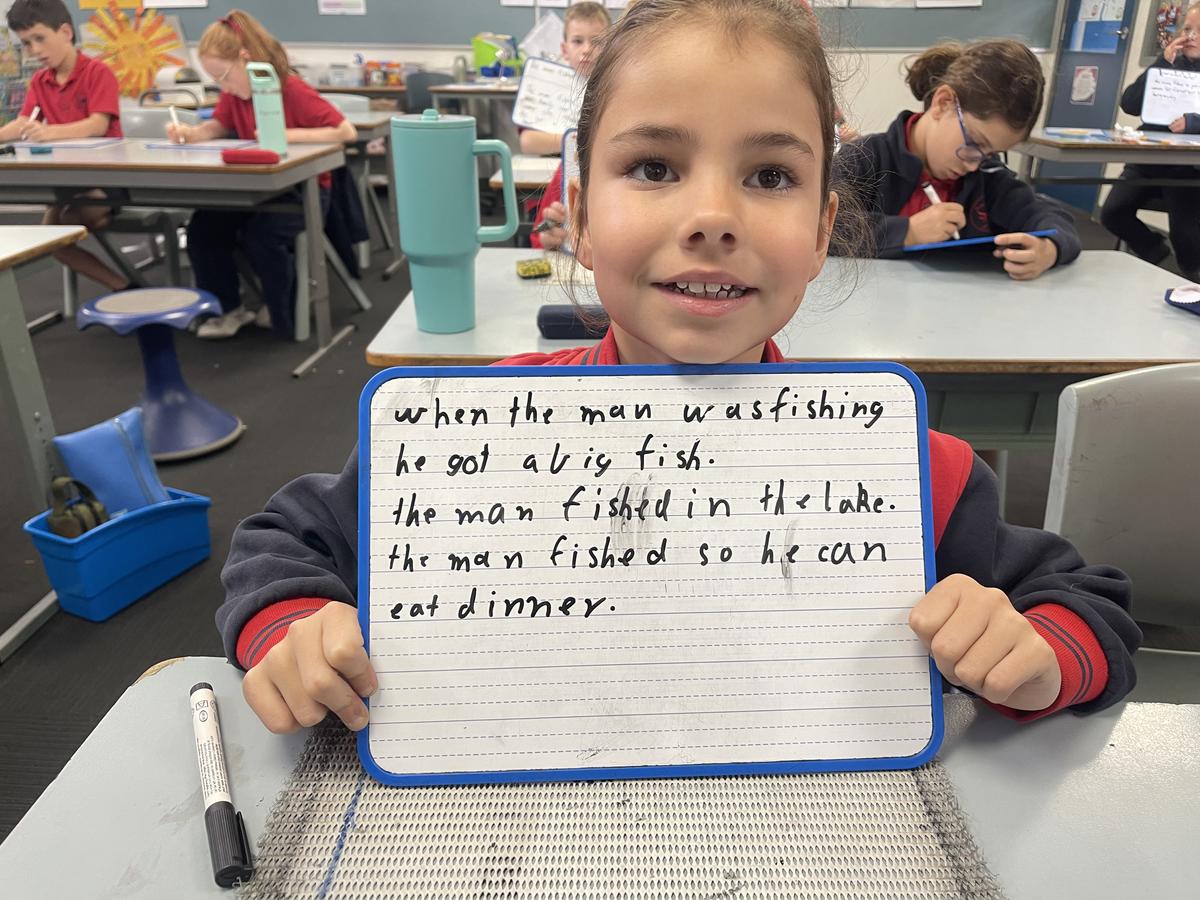 when the man was fishing
he got a big fish.
the man fished in the lake.
the man fished so he can
eat dinner.